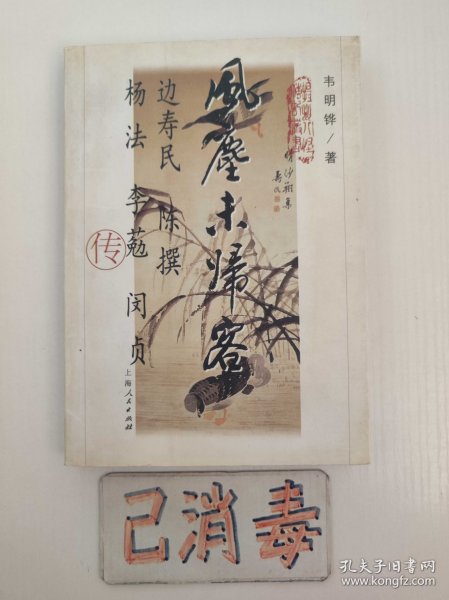 韦明铧/著
風塵未歸客
边寿民 陈撰
杨法 李葂 闵贞
传
上海人民出版社
沙翔集
寿民
已消毒
孔夫子旧书网
www.kongfz.com